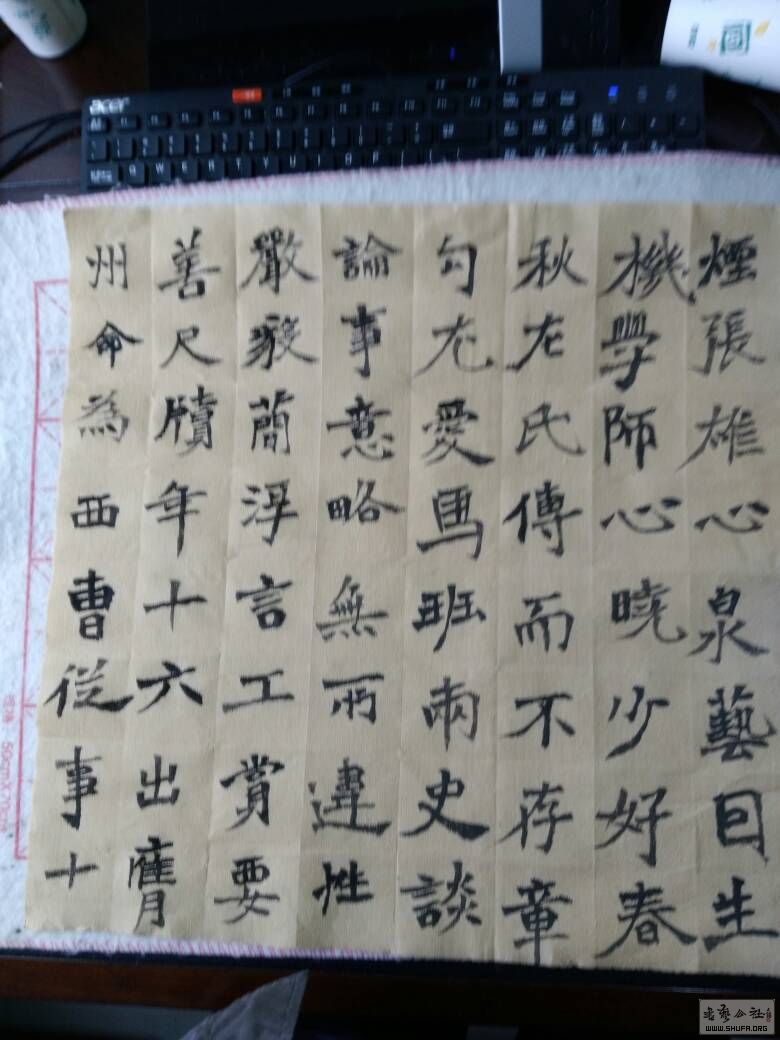 acer
煙張雄心泉藝目生
機學師心曉少好春
秋左氏傳而不存章
句尤愛馬班兩史談
論事意略無所違性
嚴毅簡浮言工賞要
善尺牘年十六出膺
州命為西曹從事十
書藝公社
WWW.SHUFA.ORG